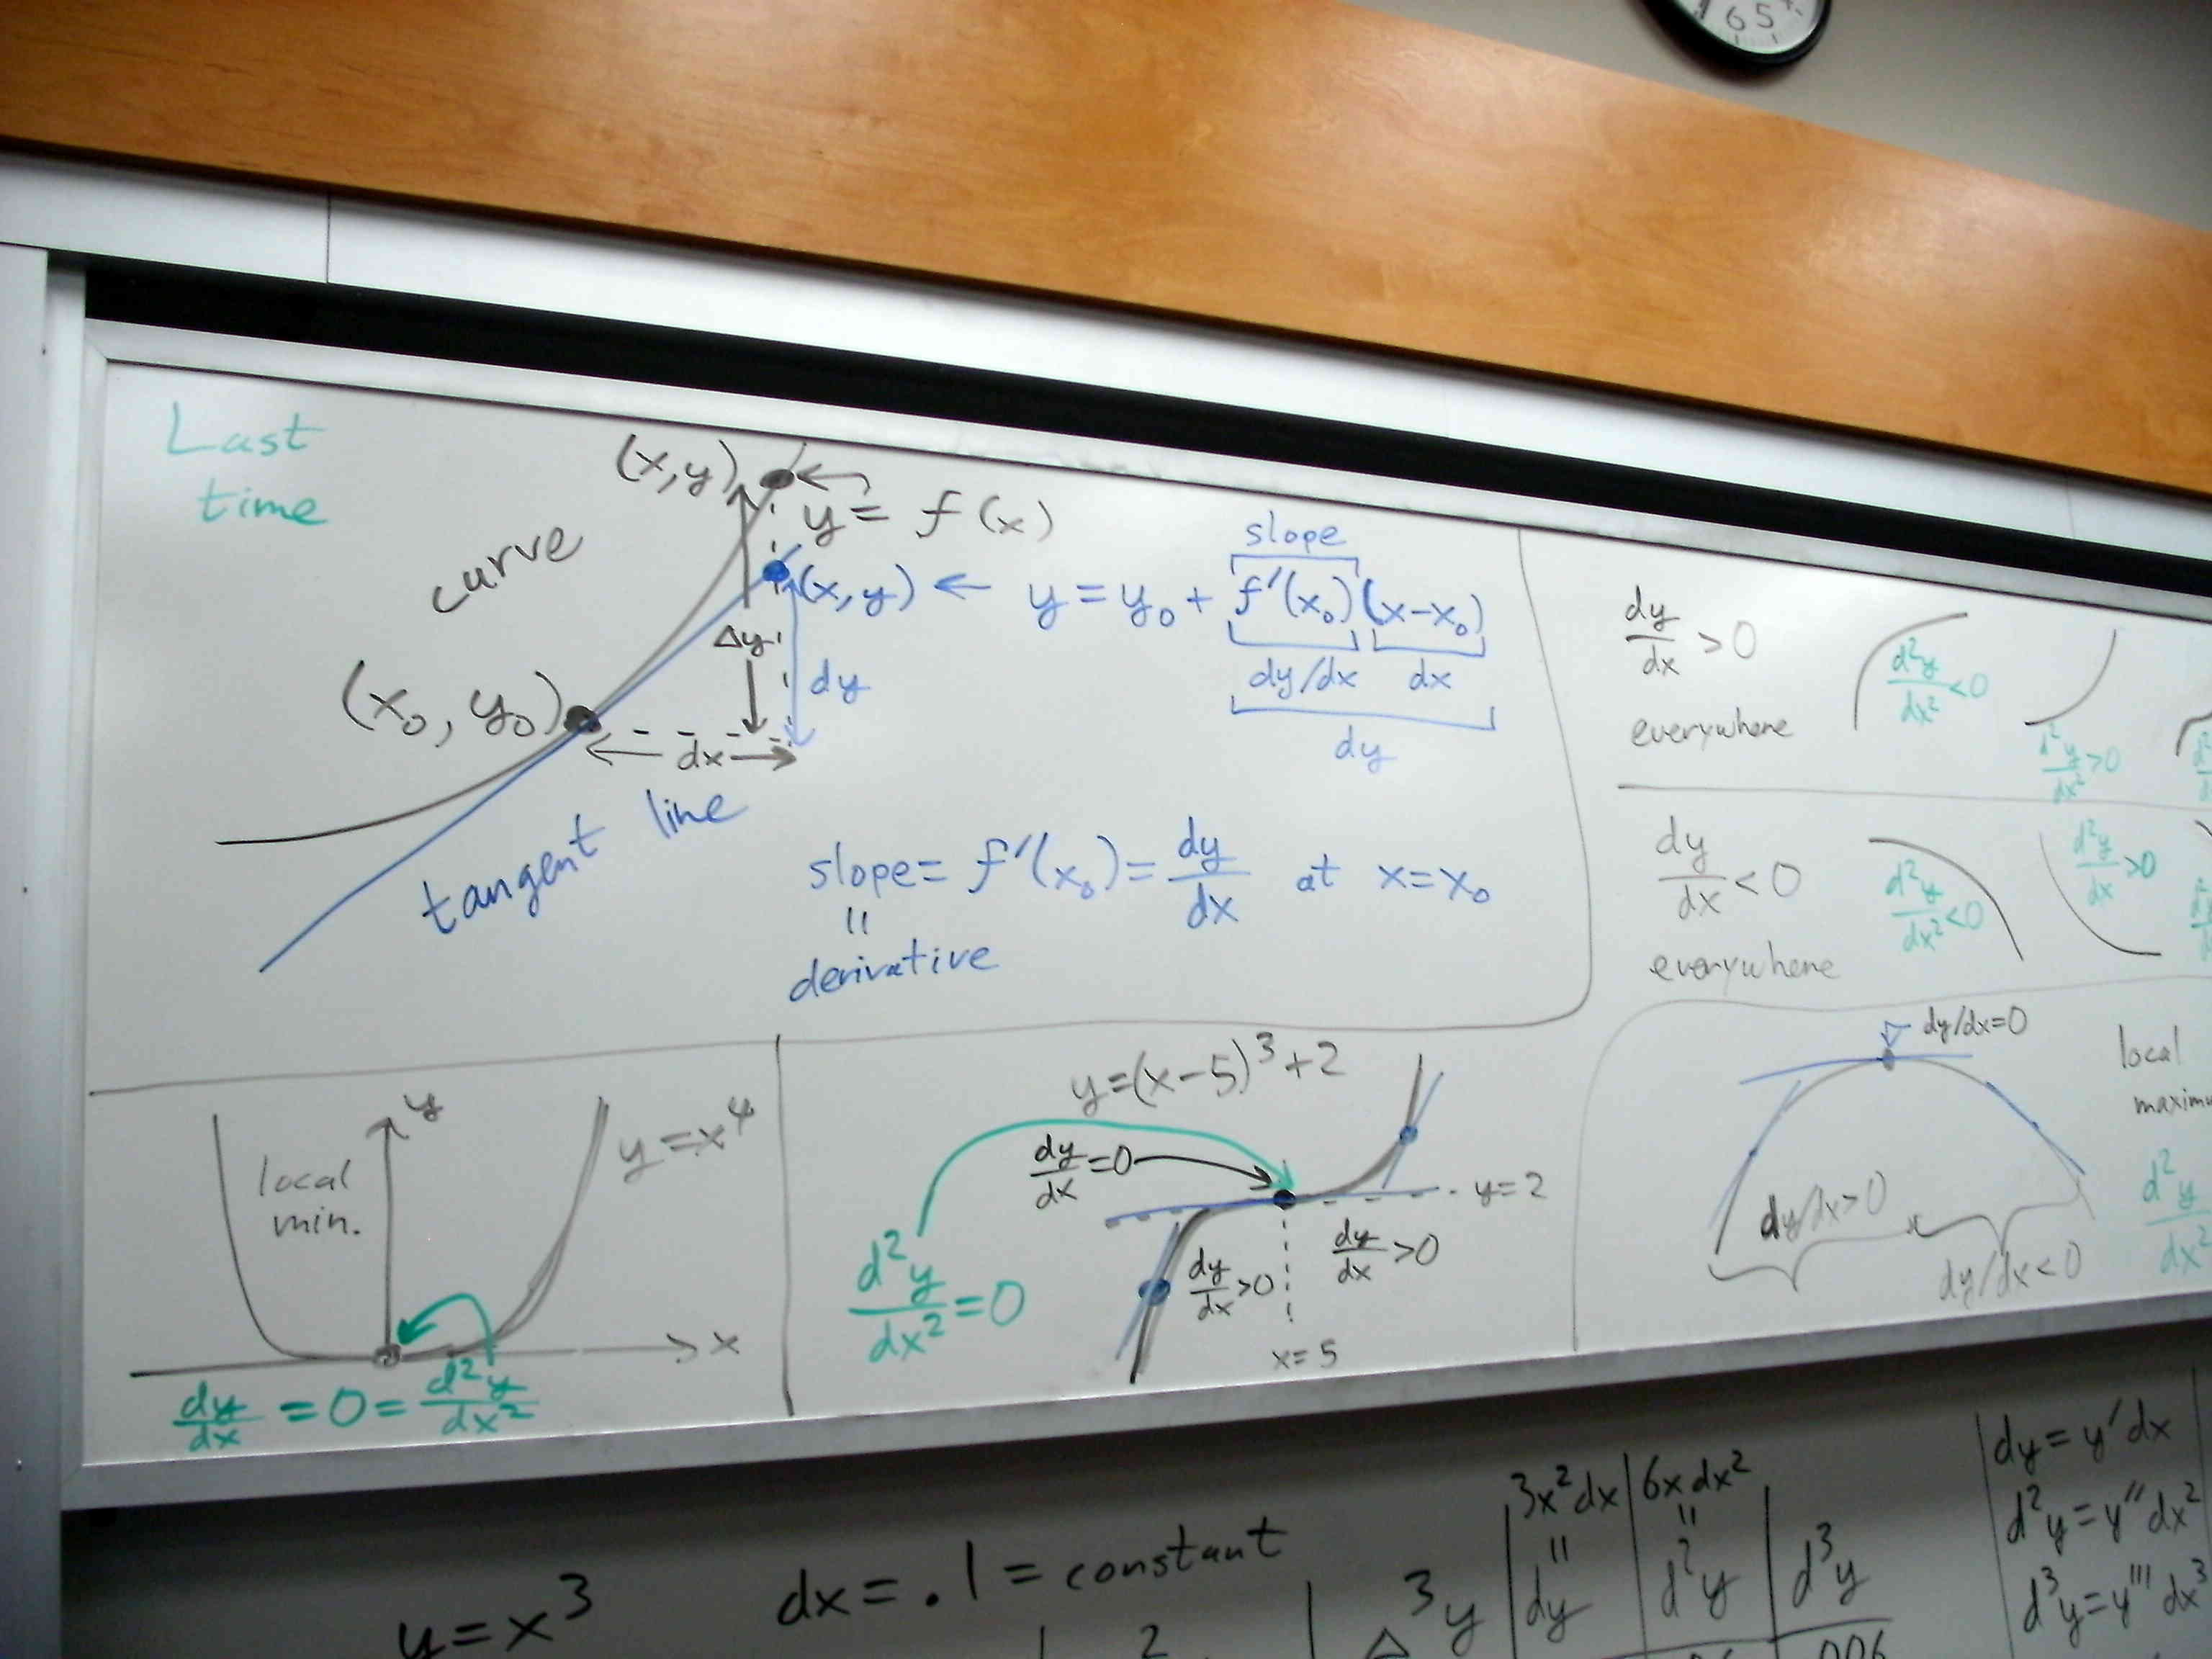 6 5
Last
time
curve
(x,y)
y = f(x)
(x,y) ← y = y₀ + f'(x₀)(x-x₀)
slope
dy/dx dx
dy
Δy
dy
(x₀, y₀)
dx
tangent line
slope = f'(x₀) = dy/dx at x=x₀
=
derivative
dy/dx > 0
everywhere
d²y/dx² < 0
d²y/dx² > 0
dy/dx < 0
everywhere
d²y/dx² < 0
d²y/dx > 0
local
min.
y
y = x⁴
x
dy/dx = 0 = d²y/dx²
y=(x-5)³+2
dy/dx = 0
y=2
dy/dx > 0
dy/dx > 0
d²y/dx² = 0
x=5
dy/dx=0
local
dy/dx>0
dy/dx<0
d²y/dx²
y=x³
dx = .1 = constant
3x²dx 6x dx²
= =
Δ³y dy d²y d³y
2
006
dy = y'dx
d²y = y''dx²
d³y = y'''dx³